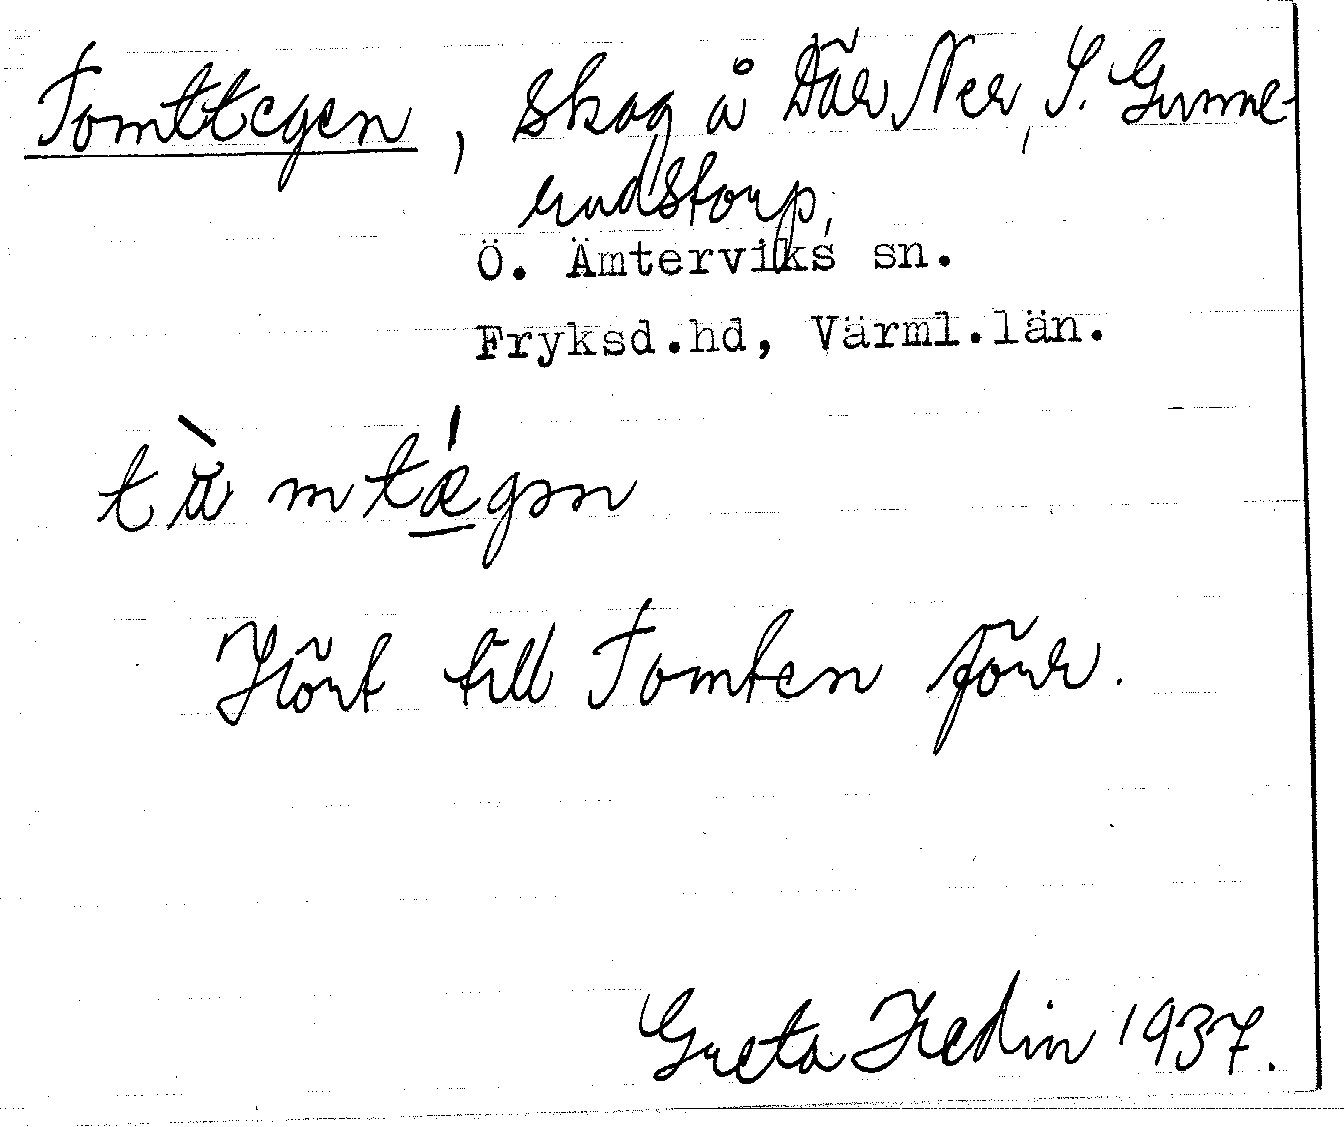 Tomttegen, skog å Där Ner, S. Gunne-
rudstorp,
Ö. Ämterviks sn.
Fryksd.hd, Värml.län.
tæ̀mtǽgən
Hört till Tomten förr.
Greta Hedin 1937.